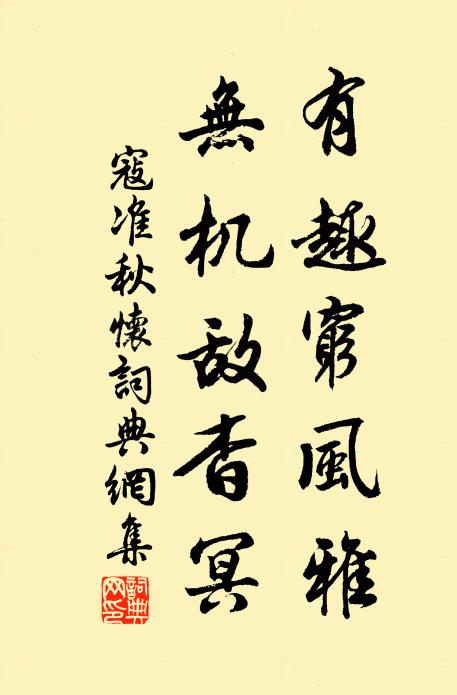 有趣窮風雅
無机敌杳冥
寇准秋懷詞典網集
詞典网印